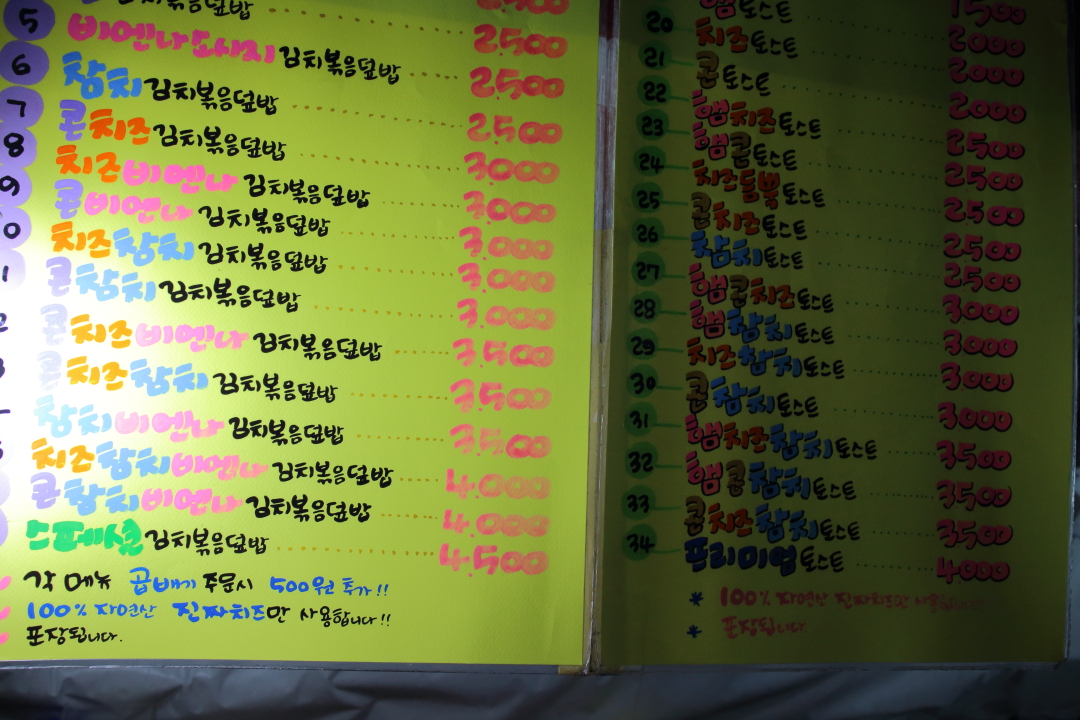 김치볶음덮밥 2500
5 비엔나소시지 김치볶음덮밥 2500
6 참치 김치볶음덮밥 2500
7 콘치즈 김치볶음덮밥 3000
8 치즈비엔나 김치볶음덮밥 3000
9 콘비엔나 김치볶음덮밥 3000
0 치즈참치 김치볶음덮밥 3000
1 콘참치 김치볶음덮밥 3000
콘치즈비엔나 김치볶음덮밥 3500
콘치즈참치 김치볶음덮밥 3500
참치비엔나 김치볶음덮밥 3500
치즈참치비엔나 김치볶음덮밥 4000
콘참치비엔나 김치볶음덮밥 4000
스페셜 김치볶음덮밥 4500
각 메뉴 곱배기 주문시 500원 추가!!
100% 자연산 진짜치즈만 사용합니다!!
포장됩니다.
1500
햄토스트 2000
20 치즈토스트 2000
21 콘토스트 2000
22 햄치즈토스트 2500
23 햄콘토스트 2500
24 치즈듬뿍토스트 2500
25 콘치즈토스트 2500
26 참치토스트 2500
27 햄콘치즈토스트 3000
28 햄참치토스트 3000
29 치즈참치토스트 3000
30 콘참치토스트 3000
31 햄치즈참치토스트 3500
32 햄콘참치토스트 3500
33 콘치즈참치토스트 3500
34 프리미엄토스트 4000
* 100% 자연산 진짜치즈만 사용합니다
* 포장됩니다